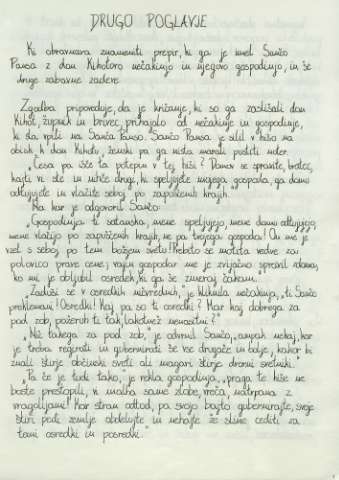 DRUGO POGLAVJE
Ki obravnava znameniti prepir, ki ga je imel Sančo
Pansa z don Kihotovo nečakinjo in njegovo gospodinjo, in še
druge zabavne zadeve
Zgodba pripoveduje, da je kričanje, ki so ga zaslišali don
Kihot, župnik in brivec, prihajalo od nečakinje in gospodinje,
ki sta vpili na Sančo Panso. Sančo Pansa je silil v hišo na
obisk k don Kihotu, ženski pa ga nista marali pustiti noter.
„Česa pa išče ta potepin v tej hiši? Domov se spravite, bratec,
kajti vi ste in nihče drug, ki speljujete mojega gospoda, ga doma
odtujujete in vlačite seboj po zapuščenih krajih."
Na kar je odgovoril Sančo:
„Gospodinja ti satanska, mene speljujejo, mene domu odtujujejo,
mene vlačijo po zapuščenih krajih, ne pa tvojega gospoda! On me je
vzel s seboj po tem božjem svetu
polovico prave cene; vajin gospodar me je zvijačno spravil zdoma,
ko mi je obljubil osredek, ki ga še zmeraj čakam."
je kliknila nečakinja, „ti Sančo
prekleti! Osredki! Kaj pa so ti osredki? Mar kaj dobrega za
pod zob, požeruh ti
„Nič takega za pod zob," je odvrnil Sančo, „ampak nekaj, kar
je treba regirati in gubernirati še vse drugače in bolje, kakor bi
znali štirje občinski sveti ali magari štirje dvorni svetniki."
„Ta če je tudi tako," je rekla gospodinja, „praga te hiše ne
boste prestopili, vi malha same zlobe, vreča, natrpana z
vragolijami! Kar stran odtod, pa svojo bajto gubernirajte, svoje
štiri pedi zemlje obdelujte in nehajte že sline cediti za
temi osredki in posredki."